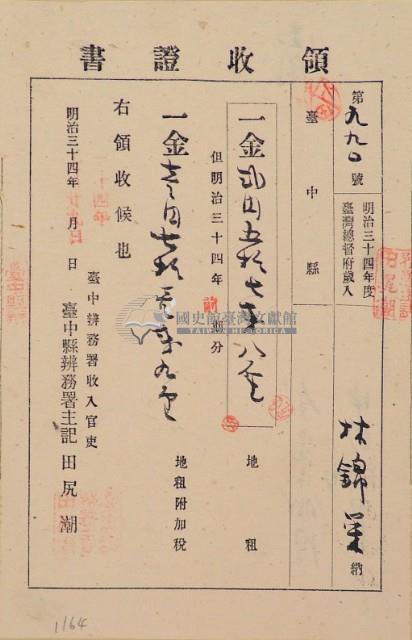 領收證書
第九九〇號
明治三十四年度
臺灣總督府歲入
臺中縣
林錦 納
一金弐円五拾七戋八厘 地租
但明治三十四年前期分
一金壱円七拾 九厘 地租附加稅
右領收候也
明治三十四年 月 日
臺中辨務署收入官吏
臺中縣辨務署主記 田尻潮
國史館臺灣文獻館
TAIWAN HISTORICA
1164